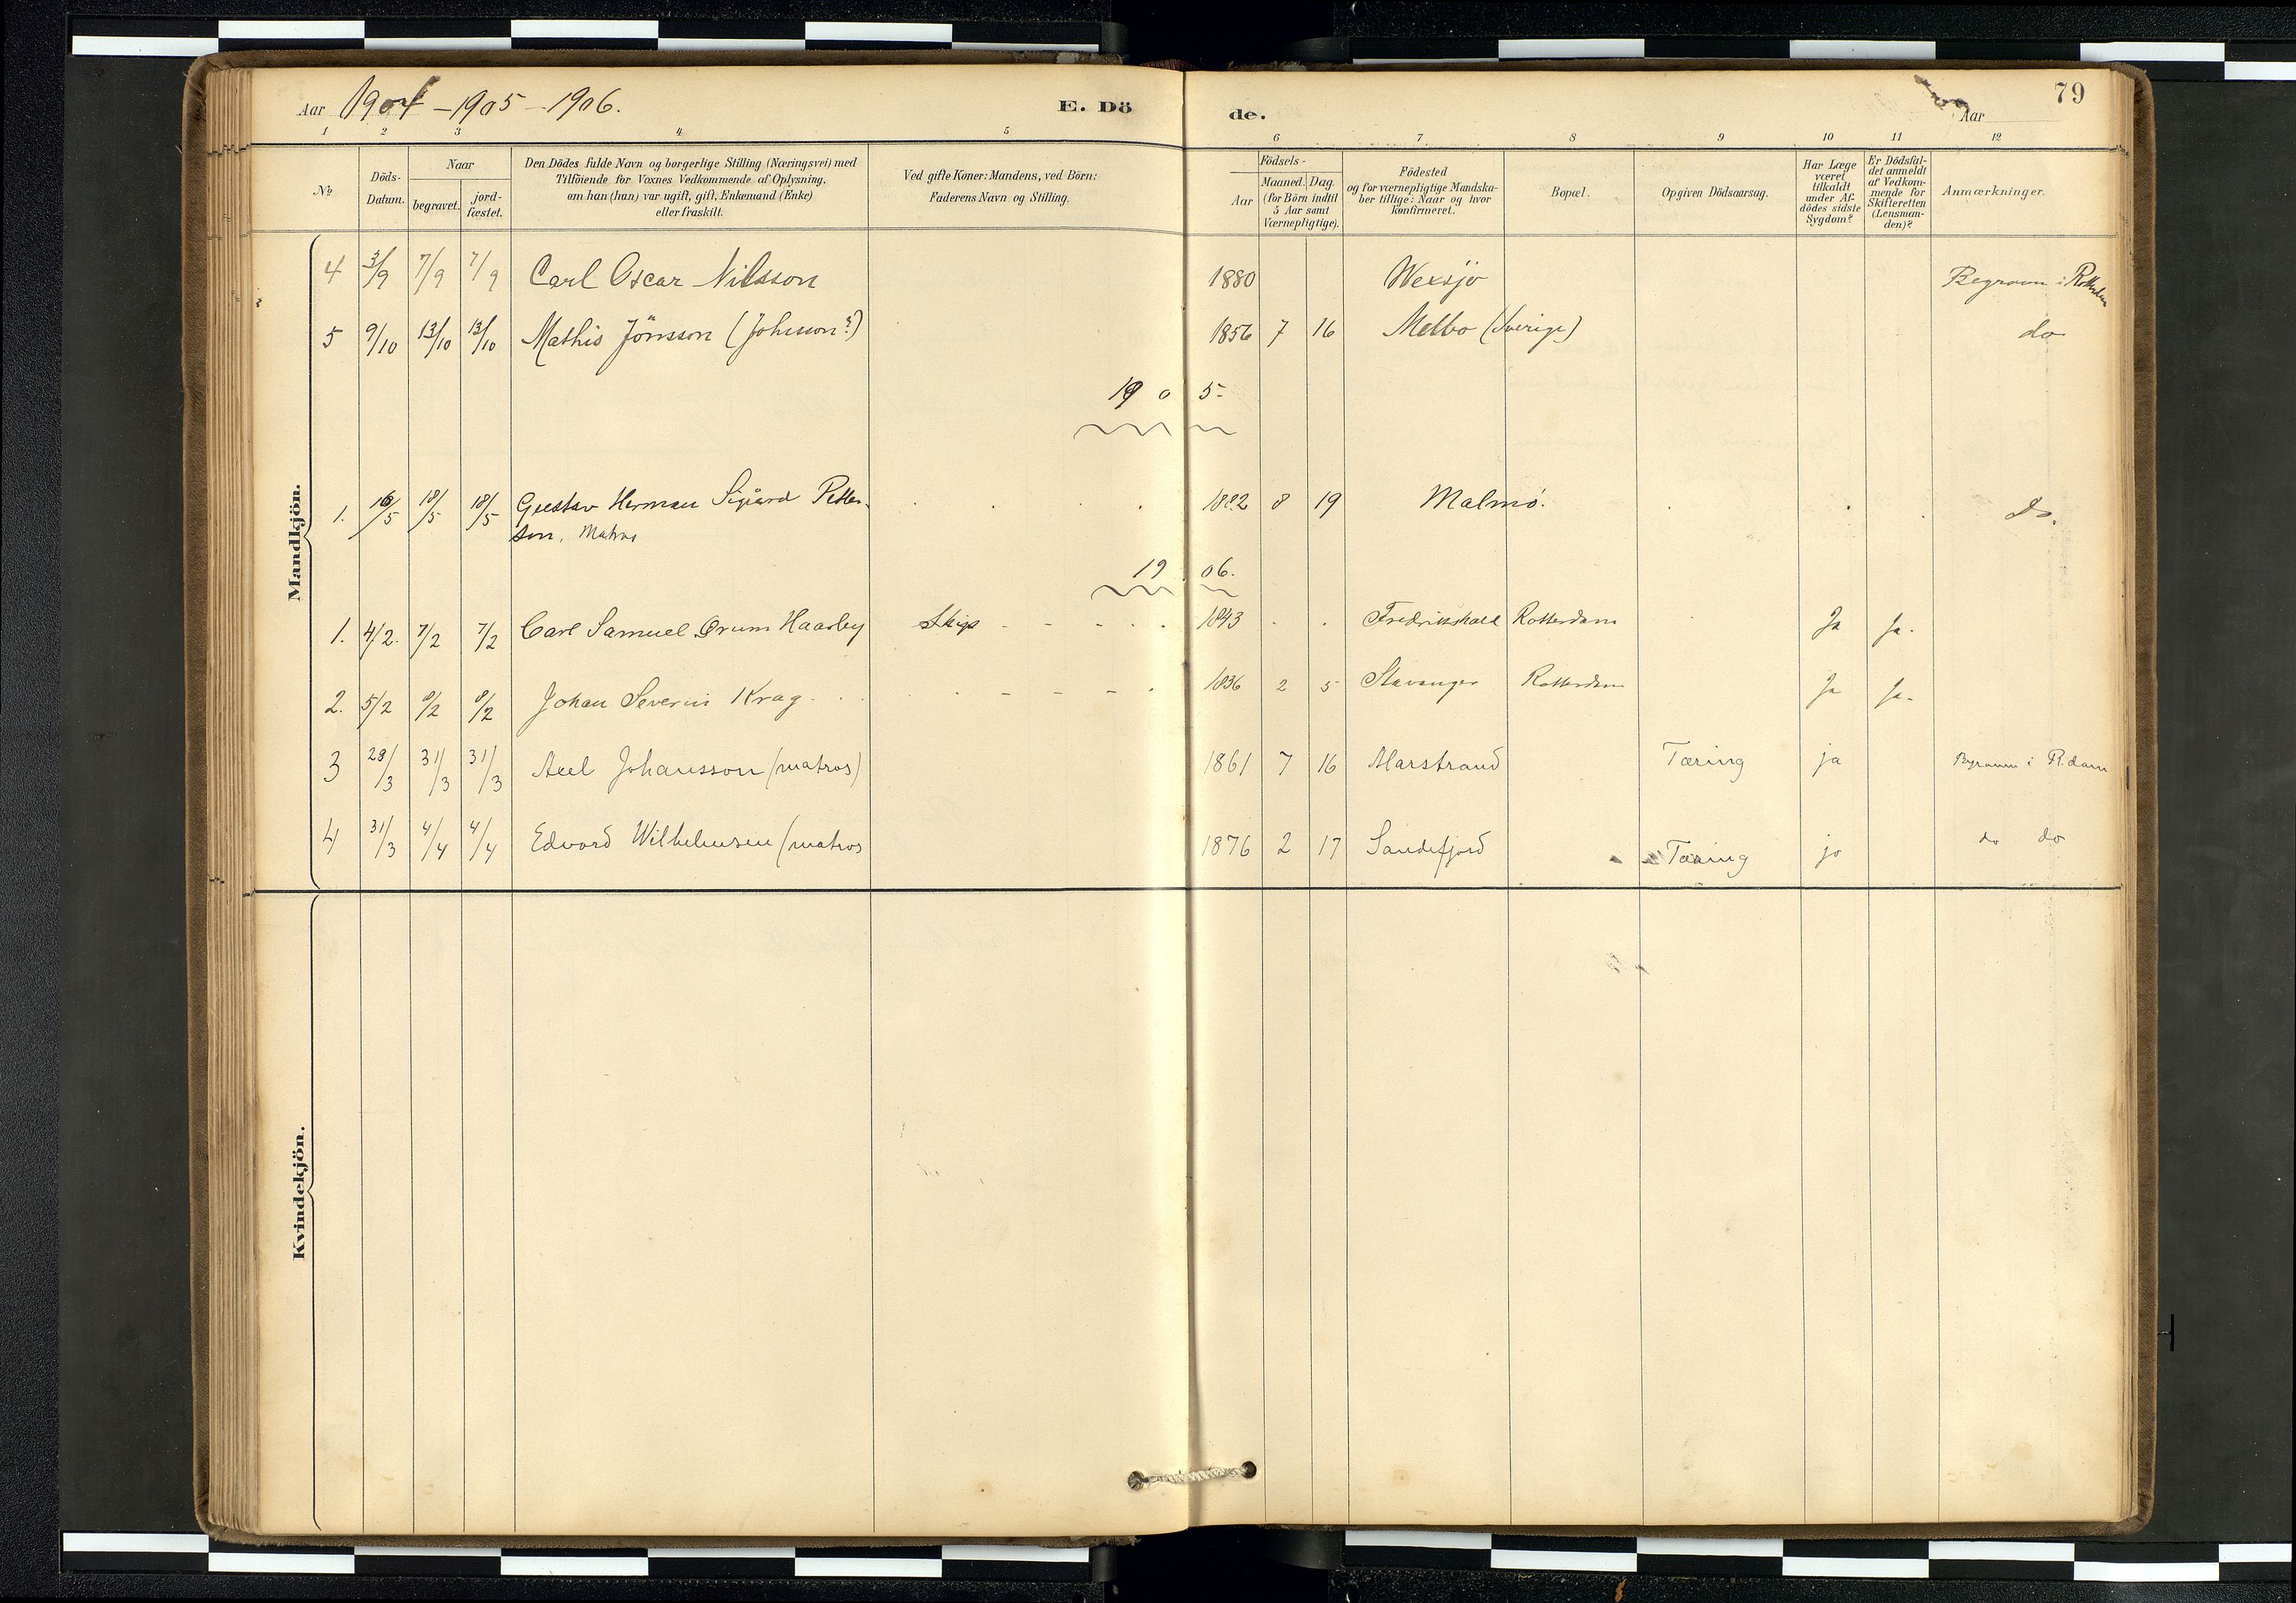 Aar 1904 - 1905 - 1906. E. Dö de. Aar 79
1 2 3 4 5 6 7 8 9 10 11 12
No
Döds-Datum.
Naar
begravet.
jord-fæstet.
Den Dödes fulde Navn og borgerlige Stilling (Næringsvei) med
Tilföiende for Voxnes Vedkommende af Oplysning,
om han (hun) var ugift, gift, Enkemand (Enke)
eller fraskilt.
Ved gifte Koner: Mandens, ved Börn:
Faderens Navn og Stilling.
Födsels-
Aar
Maaned. Dag.
(for Börn indtil
5 Aar samt
Værnepligtige).
Födested
og for værnepligtige Mandska-
ber tillige: Naar og hvor
konfirmeret.
Bopæl.
Opgiven Dödsaarsag.
Har Læge
været
tilkaldt
under Af-
dödes sidste
Sygdom?
Er Dödsfal-
det anmeldt
af Vedkom-
mende for
Skifteretten
(Lensman-
den)?
Anmærkninger.
Mandkjön.
4 3/9 7/9 7/9 Carl Oscar Nilsson 1880 Wexsjö Begraven i Rotterdam
5 9/10 13/10 13/10 Mathis Jönsson (Johnson?) 1856 7 16 Mellbo (Sverige) do
1905-
1. 16/5 18/5 18/5 Gustav Herman Sigvard Petter- 1882 8 19 Malmö. Do.
son, Matros
1906.
1. 4/2. 7/2 7/2 Carl Samuel Ørum Haarby Skips - - - 1843 Fredrikshald Rotterdam Ja Ja.
2. 5/2 8/2 8/2 Johan Severin Krag - - - 1836 2 5 Stavanger Rotterdam Ja Ja.
3 28/3 31/3 31/3 Axel Johansson (matros) 1861 7 16 Marstrand Tæring ja Begraven i R.dam
4 31/3 4/4 4/4 Edvard Wilhelmsen (matros 1876 2 17 Sandefjord Tæring ja do do
Kvindekjön.